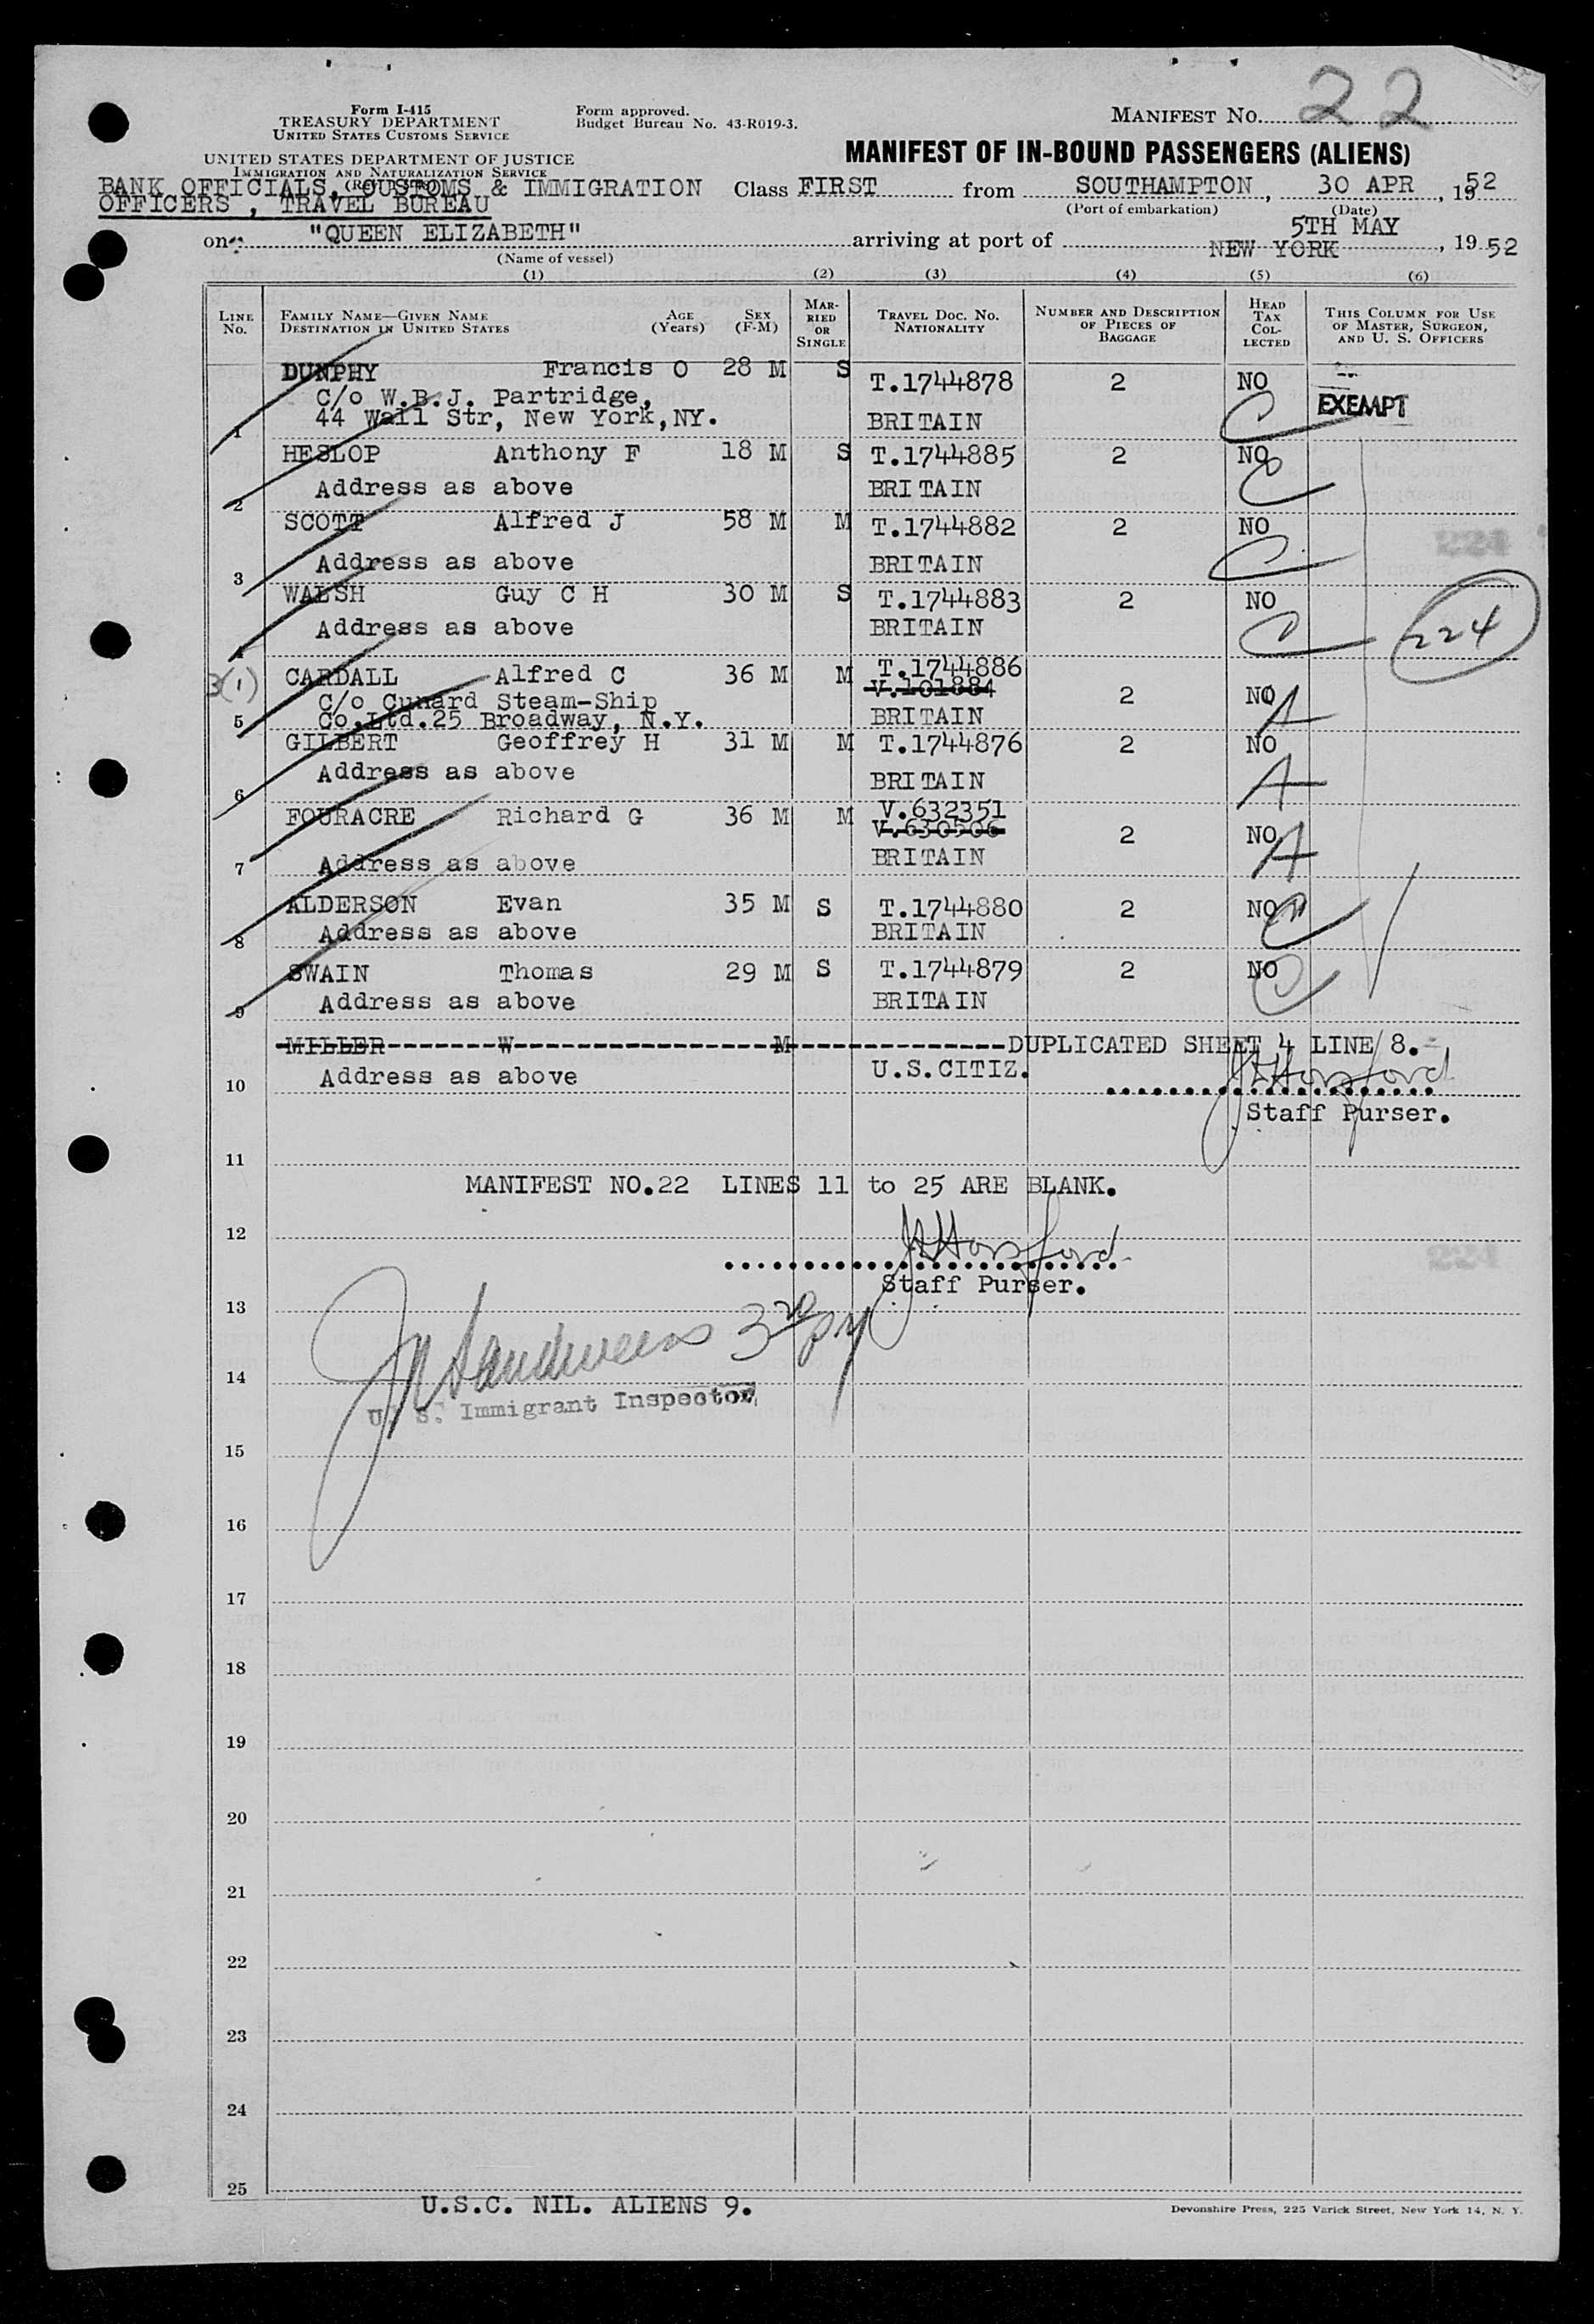 Form I-415
TREASURY DEPARTMENT
UNITED STATES CUSTOMS SERVICE
Form approved.
Budget Bureau No. 43-R019-3.
MANIFEST NO. 22
UNITED STATES DEPARTMENT OF JUSTICE
IMMIGRATION AND NATURALIZATION SERVICE
MANIFEST OF IN-BOUND PASSENGERS (ALIENS)
BANK OFFICIALS, CUSTOMS & IMMIGRATION
OFFICERS , TRAVEL BUREAU
Class FIRST from SOUTHAMPTON, 30 APR, 1952
(Port of embarkation) (Date)
on "QUEEN ELIZABETH" arriving at port of NEW YORK 5TH MAY, 1952
(Name of vessel)
(1) (2) (3) (4) (5) (6)
LINE No. FAMILY NAME—GIVEN NAME DESTINATION IN UNITED STATES AGE (Years) SEX (F-M) MARRIED OR SINGLE TRAVEL DOC. NO. NATIONALITY NUMBER AND DESCRIPTION OF PIECES OF BAGGAGE HEAD TAX COLLECTED THIS COLUMN FOR USE OF MASTER, SURGEON, AND U. S. OFFICERS
DUNPHY Francis O 28 M S T.1744878 2 NO
C/o W.B.J. Partridge, C EXEMPT
1 44 Wall Str, New York,NY. BRITAIN
HESLOP Anthony F 18 M S T.1744885 2 NO C
2 Address as above BRITAIN
SCOTT Alfred J 58 M M T.1744882 2 NO C
3 Address as above BRITAIN
WALSH Guy C H 30 M S T.1744883 2 NO C
4 Address as above BRITAIN 224
3(1) CARDALL Alfred C 36 M M T.1744886
C/o Cunard Steam-Ship V.101884 2 NO A
5 Co.Ltd.25 Broadway, N.Y. BRITAIN
GILBERT Geoffrey H 31 M M T.1744876 2 NO A
6 Address as above BRITAIN
FOURACRE Richard G 36 M M V.632351
V.630506 2 NO A
7 Address as above BRITAIN
ALDERSON Evan 35 M S T.1744880 2 NO C
8 Address as above BRITAIN
SWAIN Thomas 29 M S T.1744879 2 NO C
9 Address as above BRITAIN
MILLER W M DUPLICATED SHEET 4 LINE 8.
10 Address as above U.S.CITIZ.
Staff Purser.
11
MANIFEST NO.22 LINES 11 to 25 ARE BLANK.
12
Staff Purser.
13
14
U. S. Immigrant Inspector
15
16
17
18
19
20
21
22
23
24
25
U.S.C. NIL. ALIENS 9.
Devonshire Press, 225 Varick Street, New York 14, N. Y.